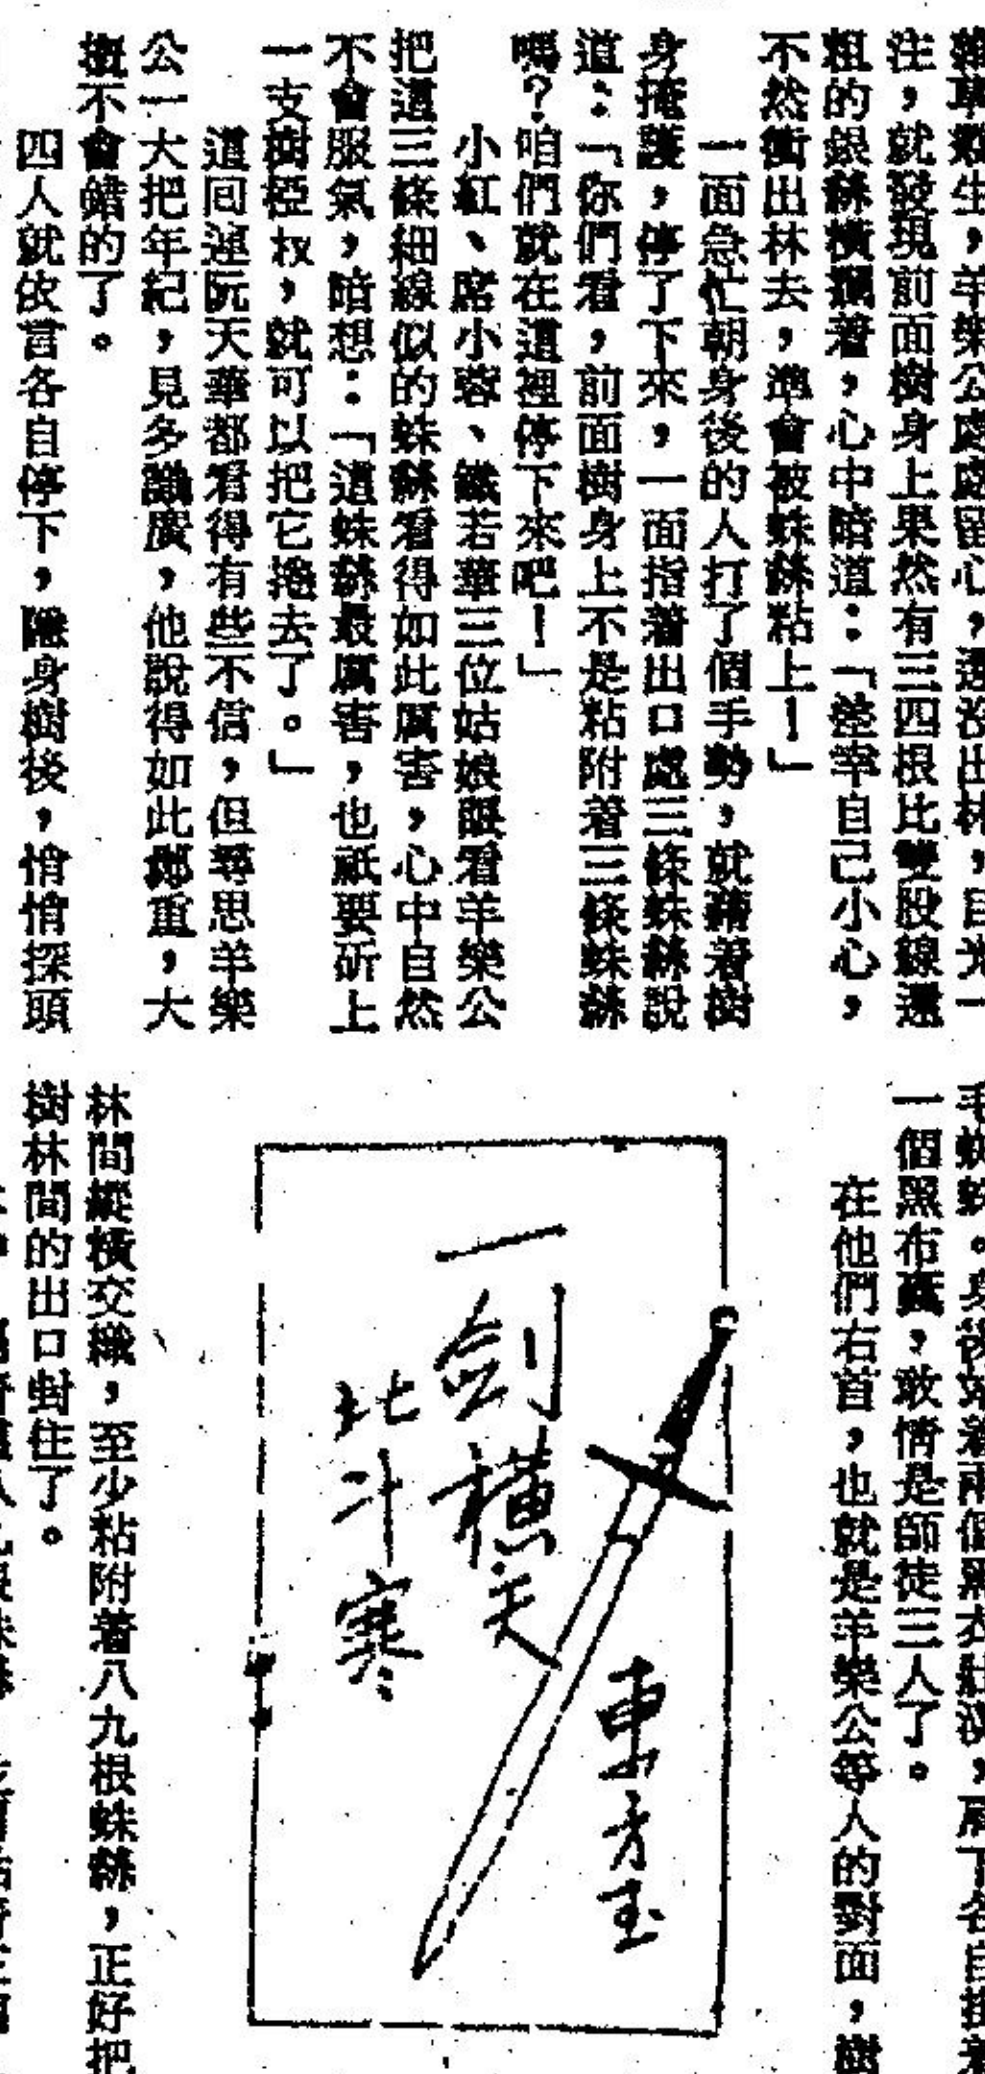 雜草叢生，羊樂公處處留心，還沒出林，目光一
注，就發現前面樹身上果然有三四根比雙股線還
粗的銀絲橫攔着，心中暗道：「差幸自己小心，
不然衝出林去，準會被蛛絲粘上！」
一面急忙朝身後的人打了個手勢，就藉着樹
身掩護，停了下來，一面指着出口處三條蛛絲說
道：「你們看，前面樹身上不是粘附着三條蛛絲
嗎？咱們就在這裡停下來吧！」
小紅、席小蓉、鐵若華三位姑娘眼看羊樂公
把這三條細線似的蛛絲看得如此厲害，心中自然
不會服氣，暗想：「這蛛絲最厲害，也祇要斫上
一支樹椏杈，就可以把它捲去了。」
這回連阮天華都看得有些不信，但尋思羊樂
公一大把年紀，見多識廣，他說得如此鄭重，大
概不會錯的了。
四人就依言各自停下，隱身樹後，悄悄探頭
毛蜘蛛。身後站着兩個黑衣壯漢，肩下各自掛着
一個黑布囊，敢情是師徒三人了。
在他們右首，也就是羊樂公等人的對面，樹
東方玉
一劍橫天
北斗寒
林間縱橫交織，至少粘附着八九根蛛絲，正好把
樹林間的出口封住了。